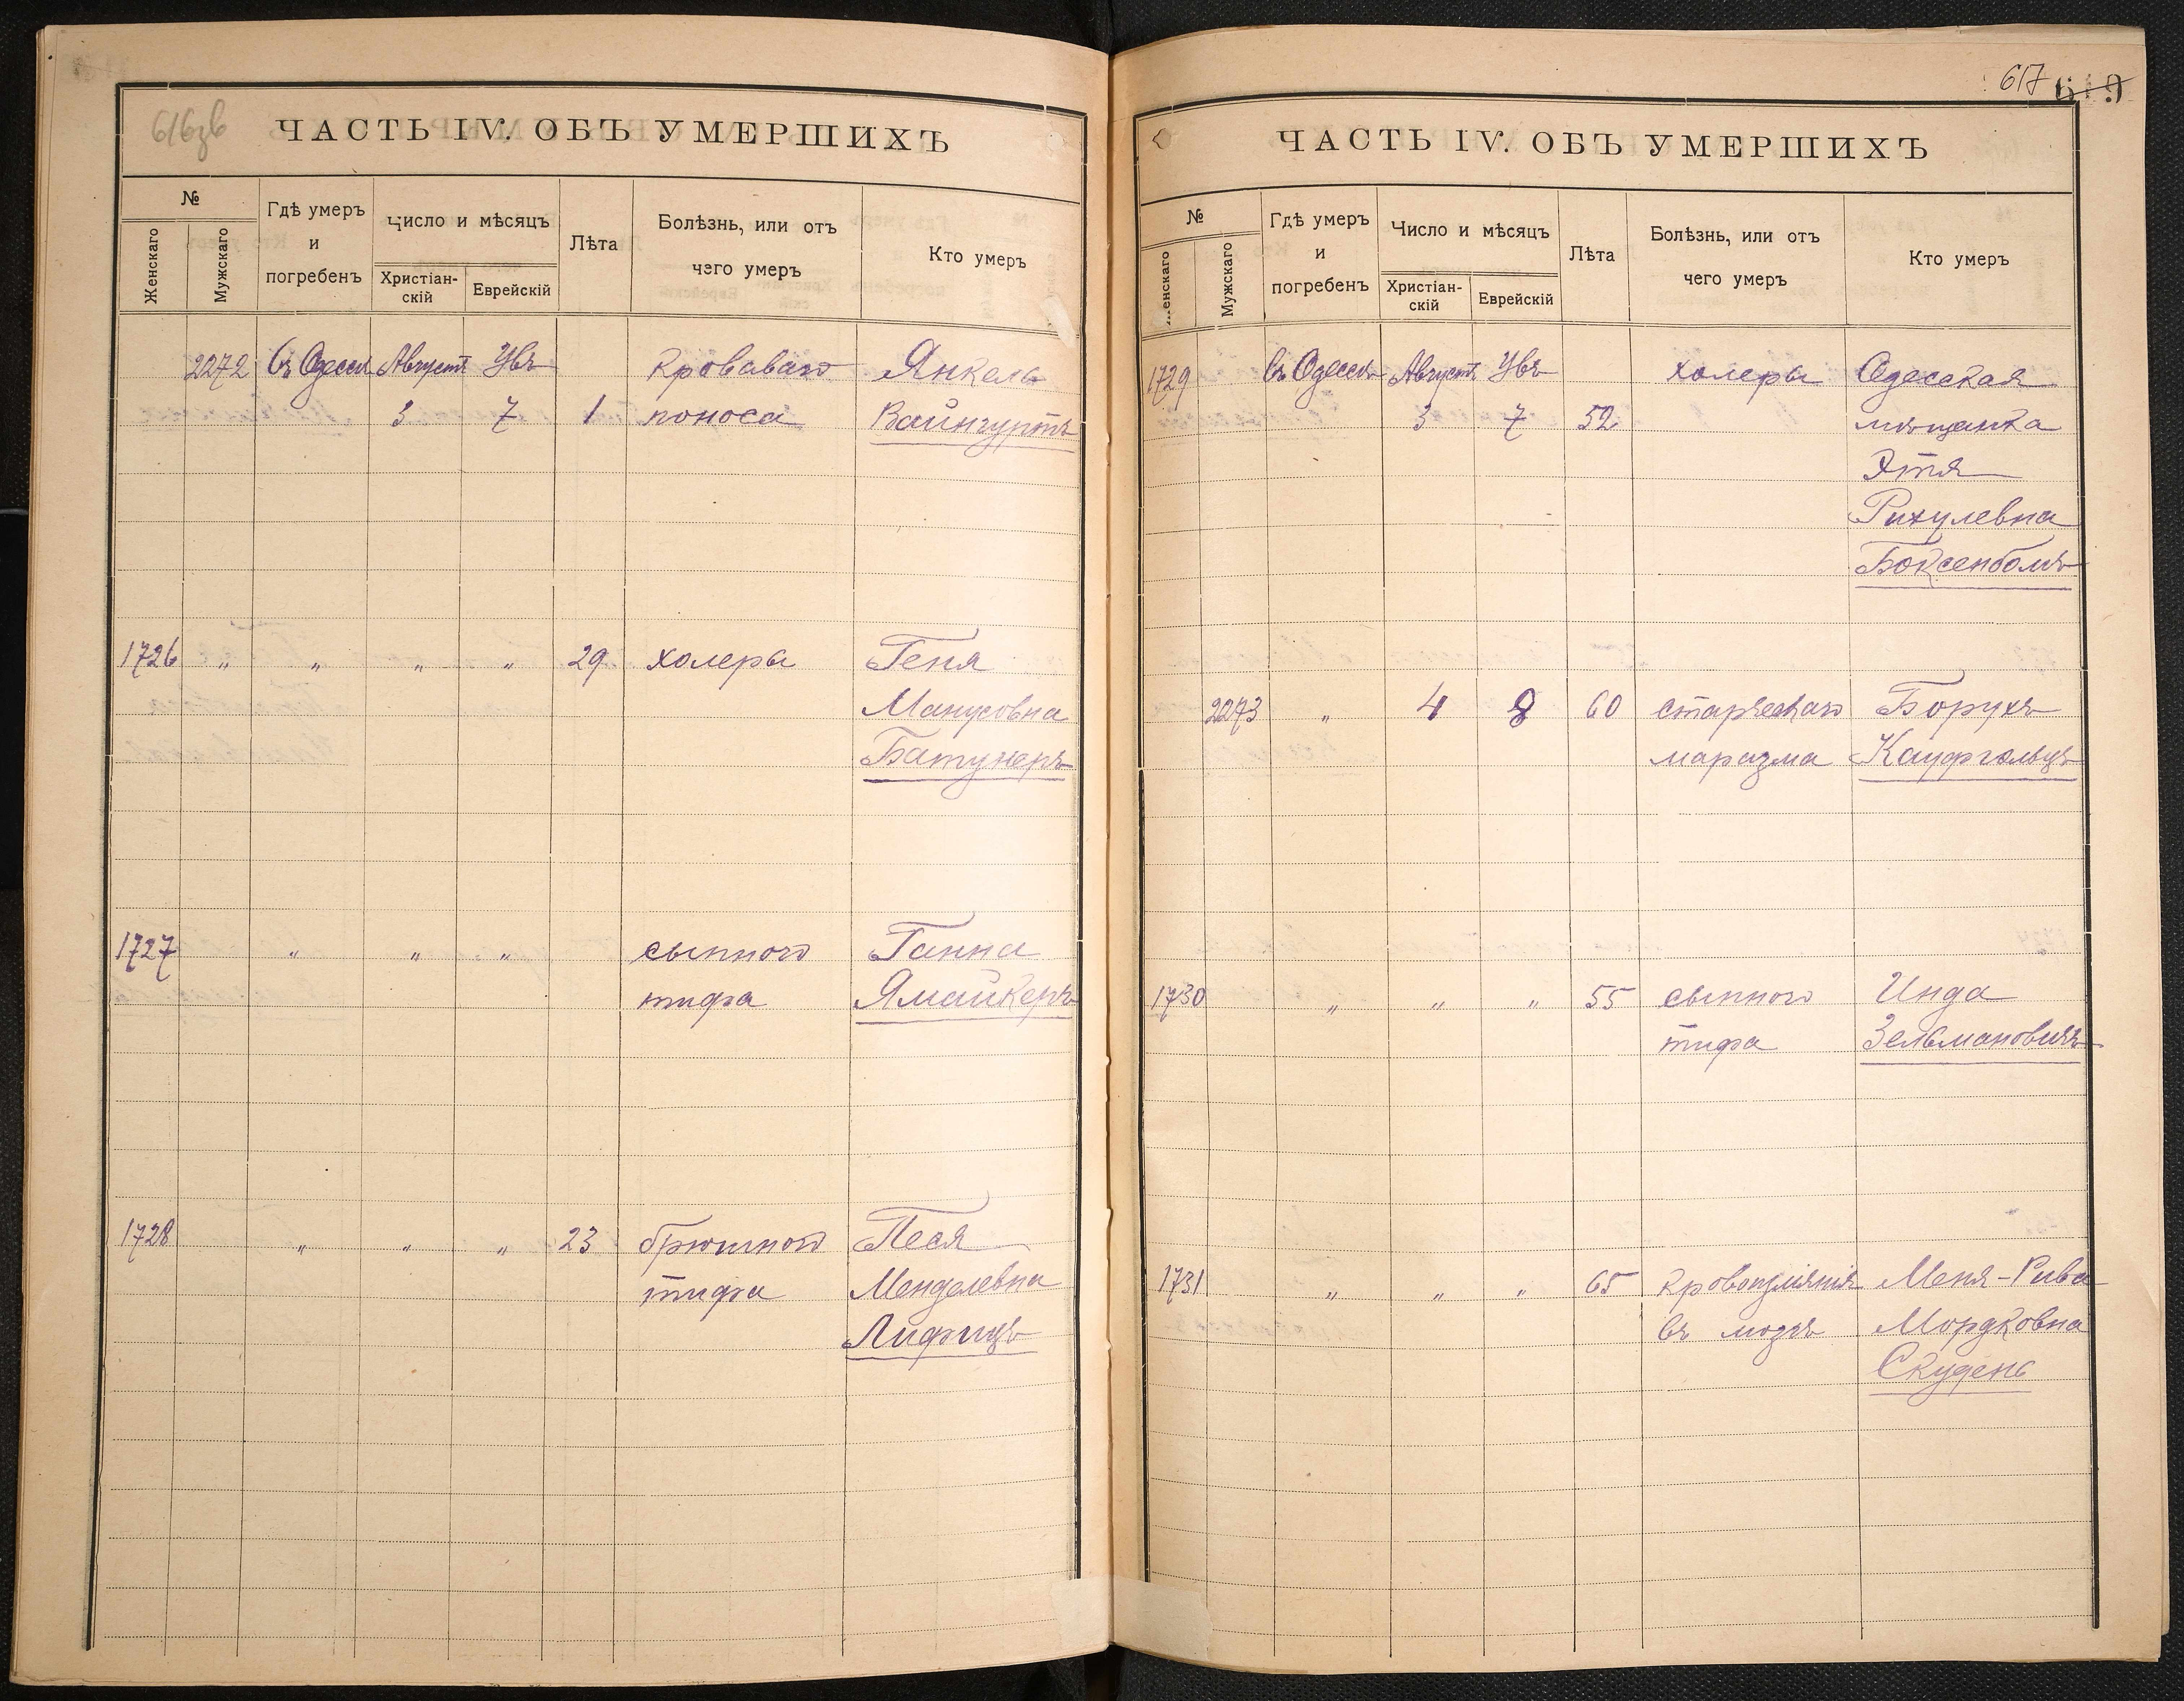 616зв
ЧАСТЬ IV. ОБЪ УМЕРШИХЪ
№
Женскаго
Мужскаго
Гдѣ умеръ
и
погребенъ
Число и мѣсяцъ
Христіан-
скій
Еврейскій
Лѣта
Болѣзнь, или отъ
чего умеръ
Кто умеръ
2272 Въ Одессѣ Августъ Увъ Кроваваго Янкель
3 7 1 поноса Вайнгуртъ
1726 " " " " 29 холеры Геня
Манусовна
Батунеръ
1727 " " " сыпного Ганна
тифа Ямайкеръ
1728 " " " 23 брюшного Песя
тифа Менделевна
Лифшцъ
617 619
ЧАСТЬ IV. ОБЪ УМЕРШИХЪ
№
Женскаго
Мужскаго
Гдѣ умеръ
и
погребенъ
Число и мѣсяцъ
Христіан-
скій
Еврейскій
Лѣта
Болѣзнь, или отъ
чего умеръ
Кто умеръ
1729 Въ Одессѣ Августъ Увъ холеры Одесская
3 7 52 мѣщанка
Этя
Рихулевна
Боксенбомъ
2273 " 4 8 60 старческаго Борухъ
маразма Кауфгольцъ
1730 " " " 55 сыпного Инда
тифа Зельмановичъ
1731 " " " 65 Кровоизліянія Меня-Рива
въ мозгъ Мордковна
Скудень